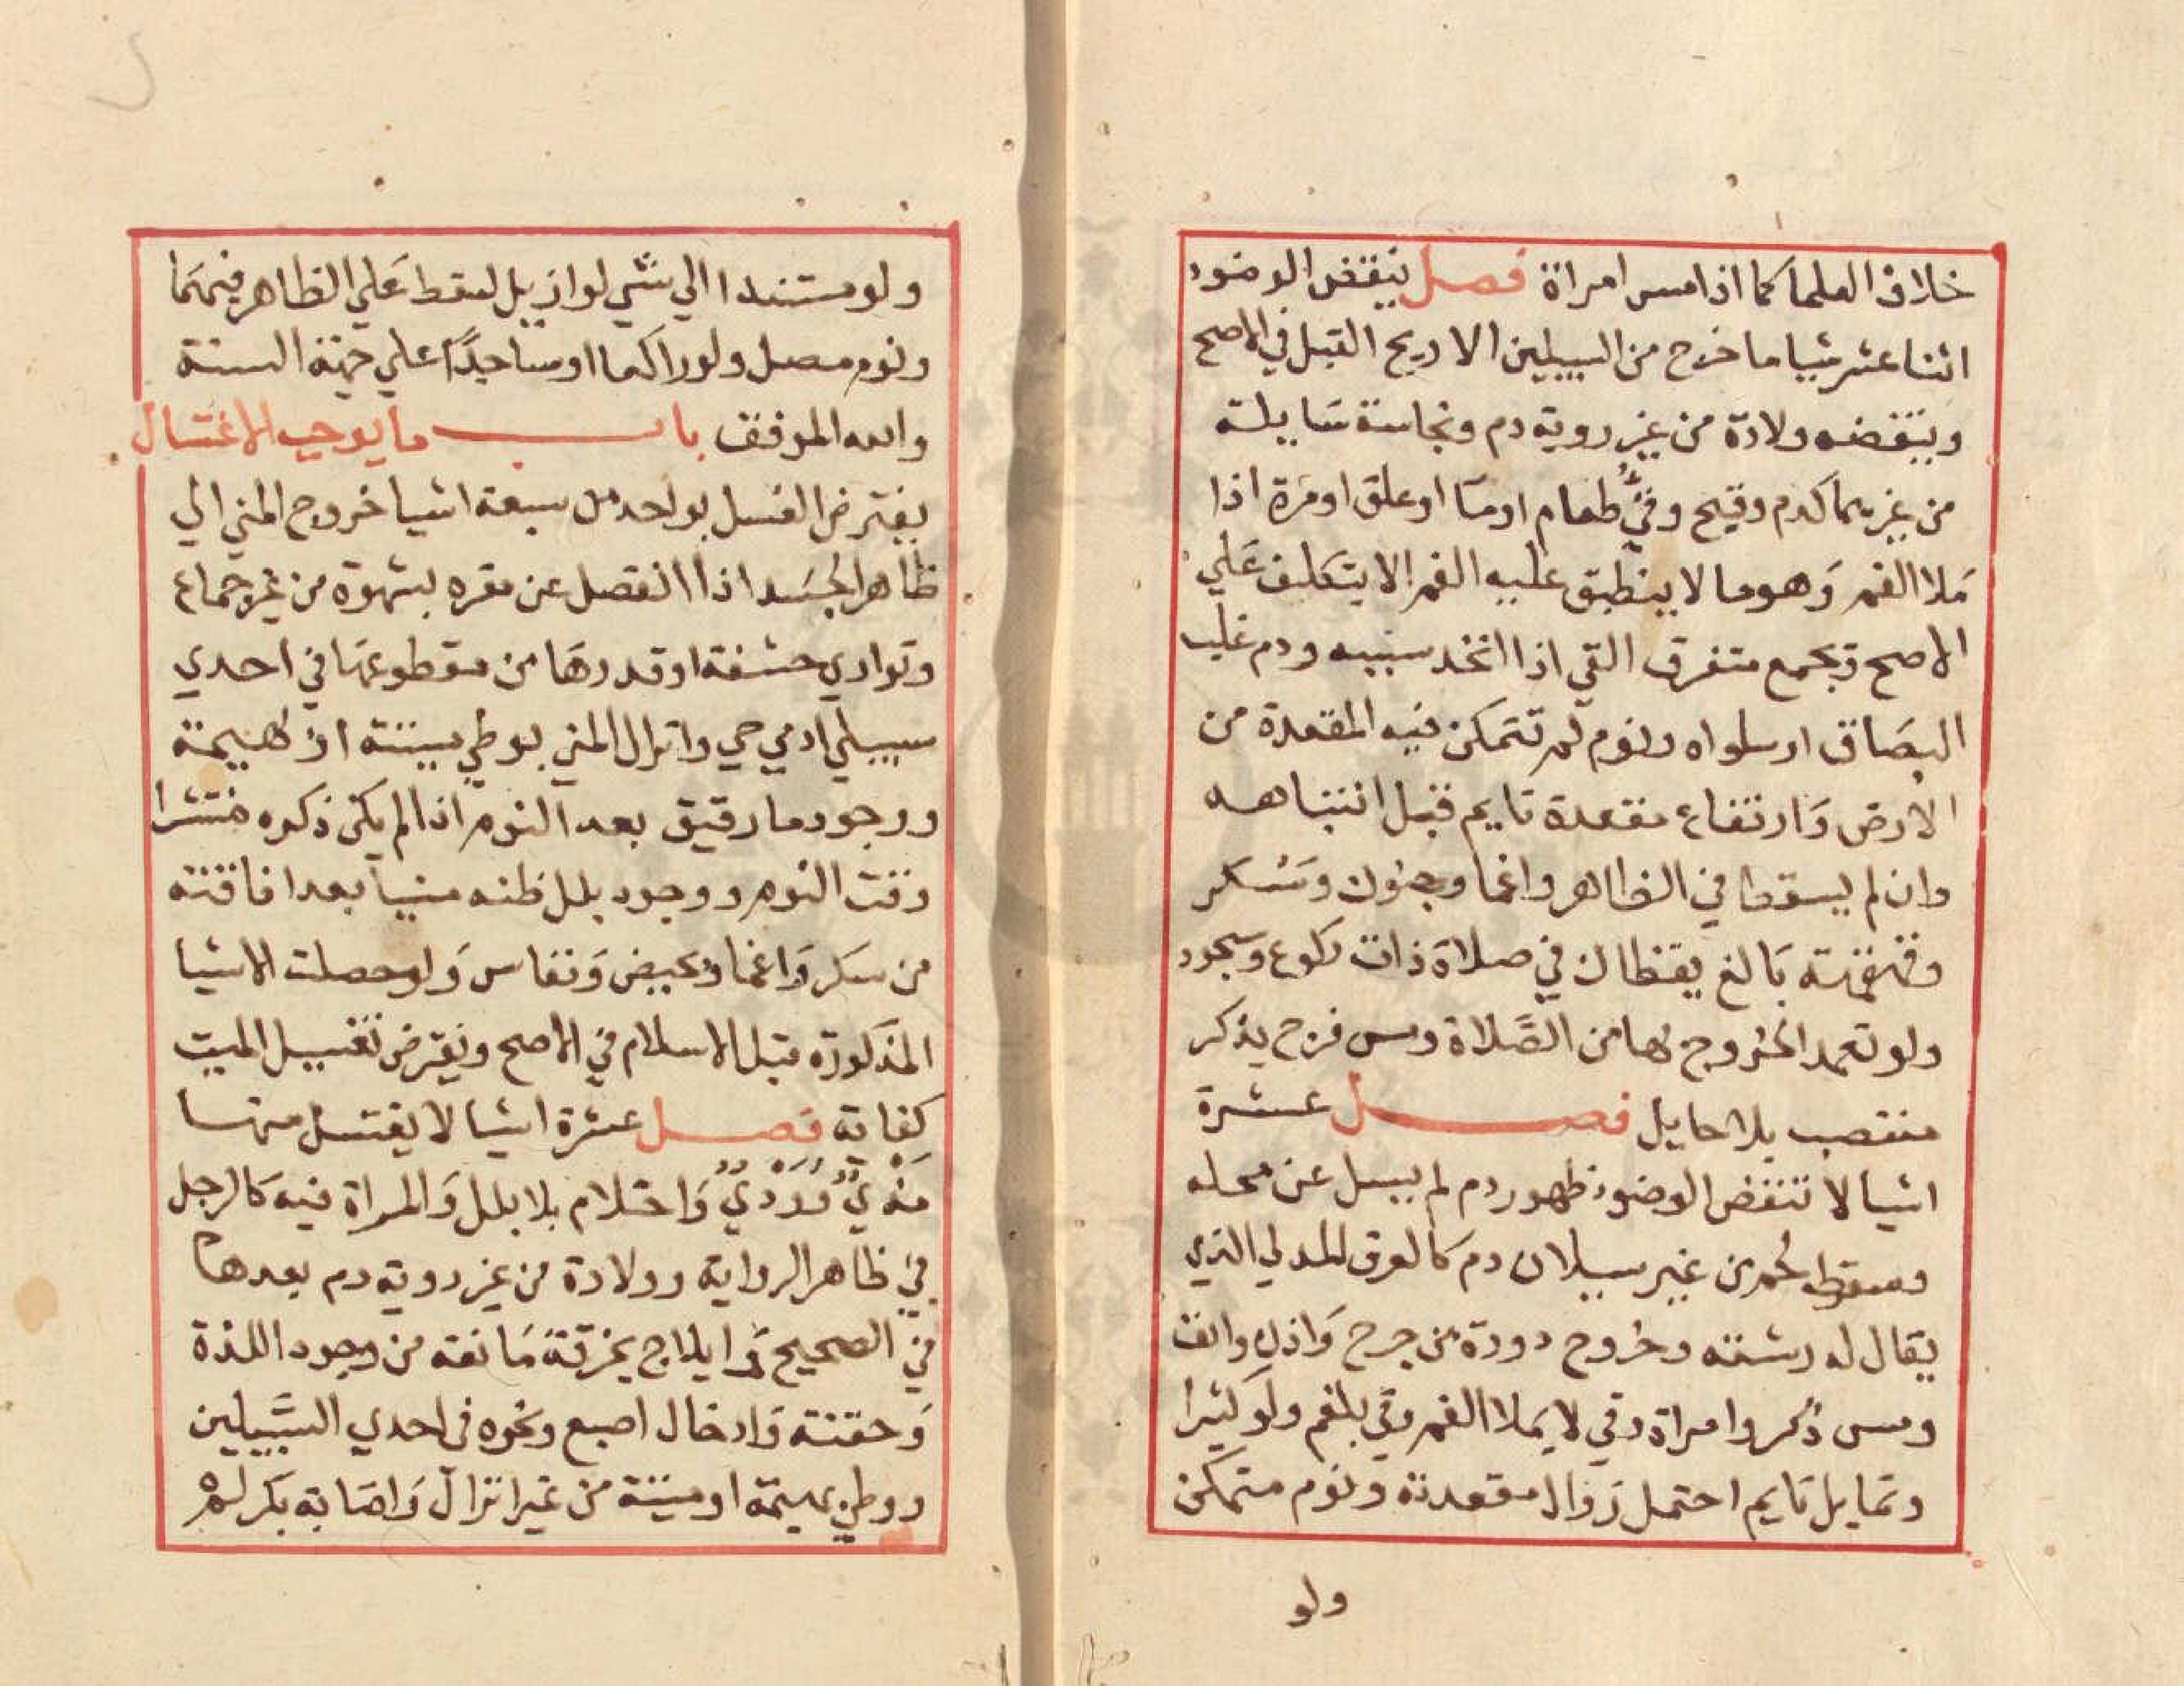 خلاف العلما كما اذا مس امراة فصل ينقض الوضوء
اثنا عشر شيا ما خرج من السبيلين الا ريح القبل في الاصح
وينقضه ولادة من غير روية دم ونجاسة سايلة
من غيرهما كدم وقيح وقيُّ طعام او ما او علق او مرة اذا
ملا الفم وهو ما لا ينطبق عليه الفم الا بتكلف علي
الاصح ويجمع متفرق القي اذا اتخد سببه ودم غلب
البصاق او ساواه ونوم لم تتمكن فيه المقعدة من
الارض وارتفاع مقعدة نايم قبل انتباهه
وان لم يسقط في الظاهر واغما وجنون وسكر
وقهقهة بالغ يقظان في صلاة ذات ركوع وسجود
ولو تعمد الخروج بها من الصَّلاة ومس فرج بذكر
منتصب بلا حايل فصل عشرة
اشيا لا تنقض الوضوء ظهور دم لم يسل عن محله
وسقوط لحم من غير سيلان دم كالعرق المدني الذي
يقال له رشته وخروج دودة من جرح واذن وانف
ومس ذكر وامراة وقي لا يملا الفم وقي بلغم ولو كثيرا
وتمايل نايم احتمل زوال مقعدته ونوم متمكن
ولو
ولو مستندا الي شي لو ازيل لسقط علي الظاهر فيهما
ونوم مصل ولو راكعا او ساجدًا علي جهة السنة
والله الموفق باب ما يوجب الاغتسال
يفترض الغسل بواحد من سبعة اشيا خروج المني الي
ظاهر الجسد اذا انفصل عن مقره بشهوة من غير جماع
وتواري حشفة او قدرها من مقطوعها في احدي
سبيلي ادمي حي وانزال المني بوطي ميتة او بهيمة
ووجود ما رقيق بعد النوم اذا لم يكن ذكره منتشرا
وقت النوم ووجود بلل ظنه منيا بعد افاقته
من سكر واغما وبحيض ونفاس ولو حصلت الاشيا
المذكورة قبل الاسلام في الاصح ويفترض تغسيل الميت
كفاية فصل عشرة اشيا لا يغتسل منها
مذيٌ وودْيٌ واحتلام بلا بلل والمراة فيه كالرجل
في ظاهر الرواية وولادة من غير روية دم بعدها
في الصحيح وايلاج بخرقة مانعة من وجود اللذة
وحقنة وادخال اصبع ونحوه في احدي السَّبيلين
ووطي بهيمة او ميتة من غير انزال واصابة بكر لم